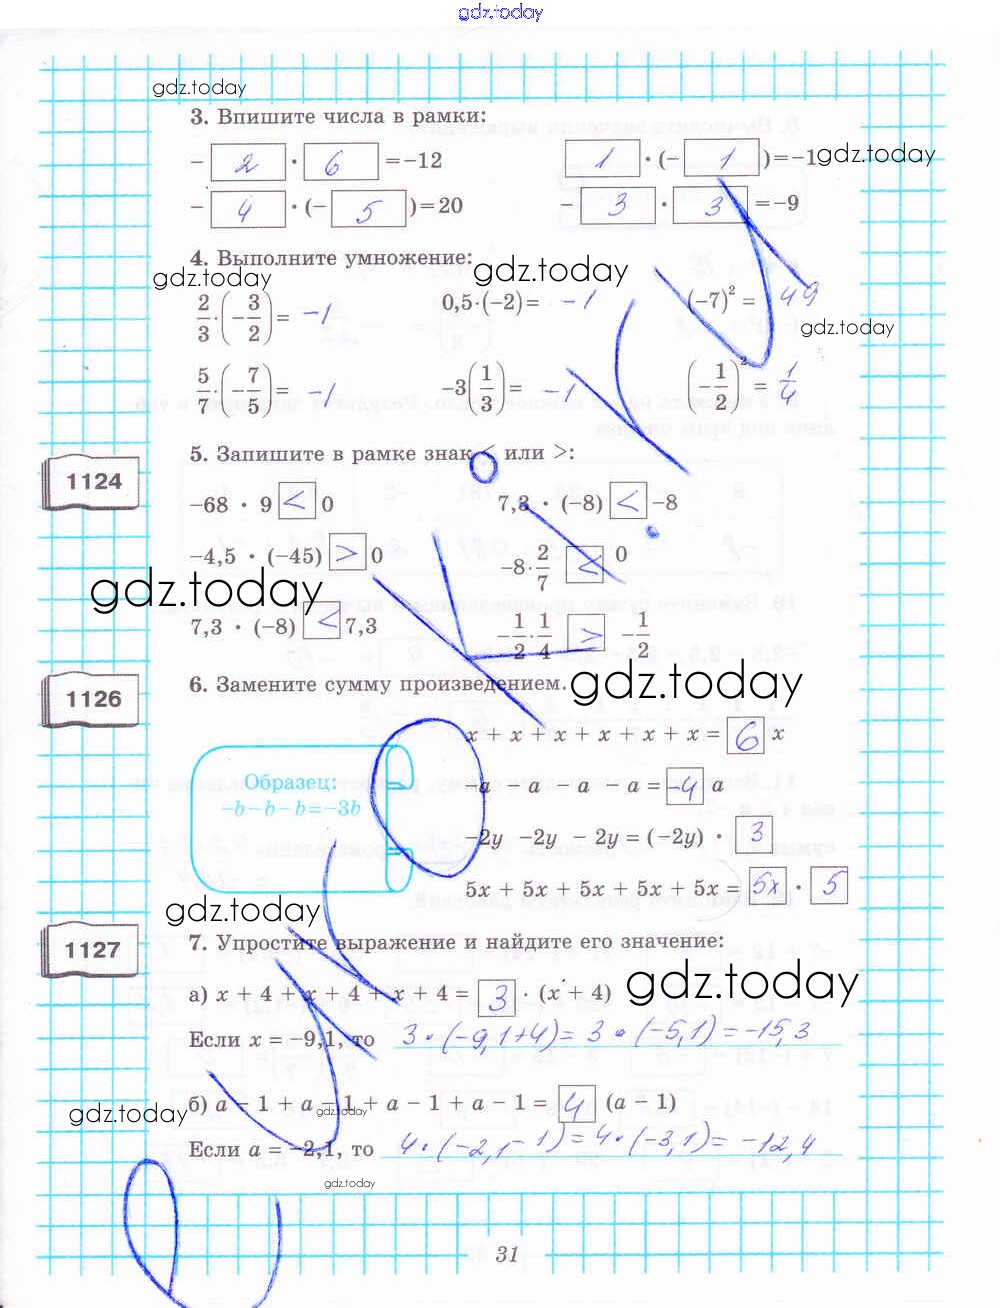 gdz.today
gdz.today
3. Впишите числа в рамки:
- 2 · 6 = -12    1 · (- 1 ) = -1
gdz.today
- 4 · (- 5 ) = 20    - 3 · 3 = -9
4. Выполните умножение:
gdz.today gdz.today
2/3 · (-3/2) = -1    0,5 · (-2) = -1    (-7)² = 49
gdz.today
5/7 · (-7/5) = -1    -3(1/3) = -1    (-1/2)² = 1/4
5. Запишите в рамке знак < или >:
1124
-68 · 9 < 0    7,3 · (-8) < -8
-4,5 · (-45) > 0    -8 · 2/7 < 0
gdz.today
7,3 · (-8) < 7,3    -1/2 · 1/4 > -1/2
1126
6. Замените сумму произведением.
gdz.today
x + x + x + x + x + x = 6 x
Образец:
-b - b - b = -3b
-a - a - a - a = -4 a
-2y -2y - 2y = (-2y) · 3
5x + 5x + 5x + 5x + 5x = 5x · 5
gdz.today
1127
7. Упростите выражение и найдите его значение:
gdz.today
а) x + 4 + x + 4 + x + 4 = 3 · (x + 4)
Если x = -9,1, то 3 · (-9,1+4) = 3 · (-5,1) = -15,3
б) a - 1 + a - 1 + a - 1 + a - 1 = 4 (a - 1)
gdz.today gdz.today
Если a = -2,1, то 4 · (-2,1 - 1) = 4 · (-3,1) = -12,4
gdz.today
31